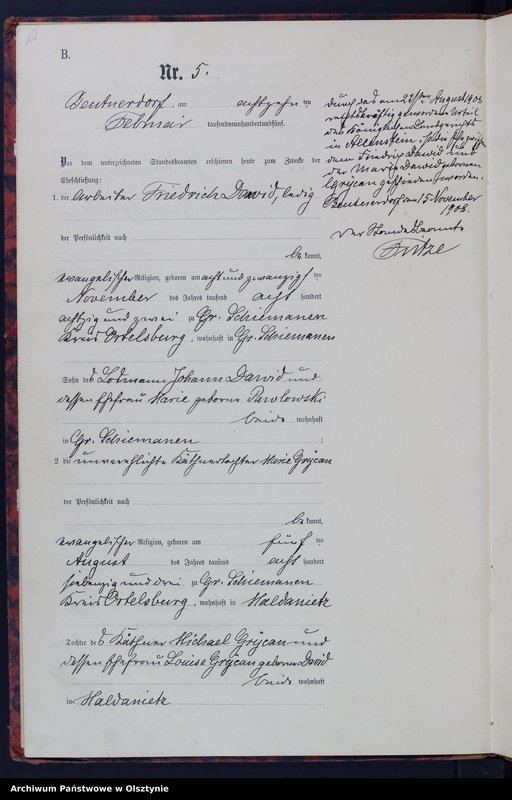 B.
Nr. 5.
Beutnerdorf, am achtzehn ten
Februar tausendneunhundertundfünf.
Vor dem unterzeichneten Standesbeamten erschienen heute zum Zwecke der
Eheschließung:
1. der Arbeiter Friedrich Dawid, ledig
der Persönlichkeit nach
be kannt,
evangelischer Religion, geboren am acht und zwanzigsten
November des Jahres tausend acht hundert
achtzig und zwei zu Gr. Schiemanen
Kreis Ortelsburg, wohnhaft in Gr. Schiemanen
Sohn des Johann Dawid und
dessen Ehefrau Marie geborne Pawlowski
beide wohnhaft
in Gr. Schiemanen ;
2. die unverehlichte Käthnertochter Marie Grÿcan
der Persönlichkeit nach
be kannt,
evangelischer Religion, geboren am fünf ten
August des Jahres tausend acht hundert
siebenzig und drei zu Gr. Schiemanen
Kreis Ortelsburg, wohnhaft in Haldanietz
Tochter des Käthner Michael Grÿcan und
dessen Ehefrau Louise Grÿcan geborne Dawid
beide wohnhaft
in Haldanietz
Durch das am 22ten August 1908
rechtskräftig gewordene Urteil
des Königlichen Landgerichts
in Allenstein ist die Ehe zwischen
dem Friedrich Dawid und
der Marie Dawid gebornen
Grÿcan geschieden worden.
Beutnerdorf am 15 November
1908.
Der Standesbeamte
Fritze
Archiwum Państwowe w Olsztynie